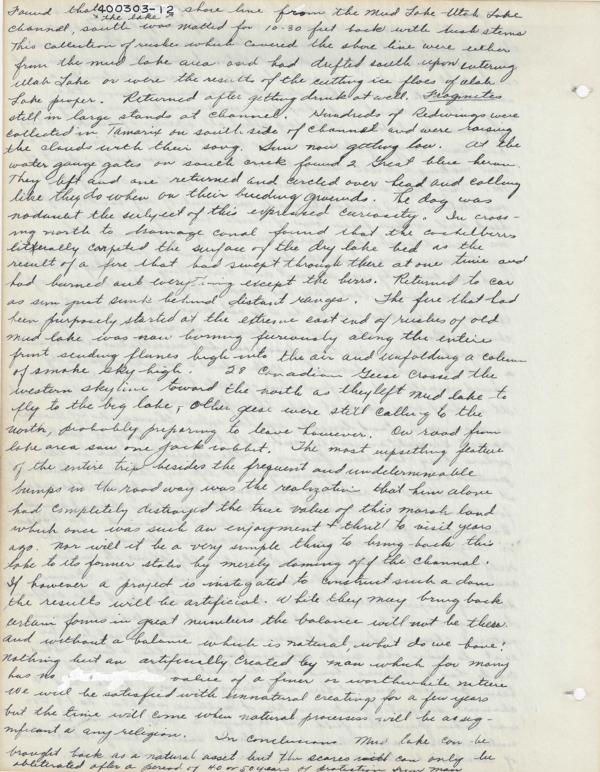 Found that 400303-12 shore line from the Mud Lake Utah Lake
the lake
channel, south was matted for 10-30 feet back with rush stems
This collection of rushes which covered the shore line were either
from the mud lake area and had drifted south upon entering
utah Lake or were the results of the cutting ice flocs of utah
Lake proper. Returned after getting drink at well. Fragmites
still in large stands at channel. Hundreds of Redwings were
collected in Tamarix on south side of channel and were raising
the clouds with their song. Sun now getting low. At the
water gauge gates on south creek found 2 Great blue heron.
They left and one returned and circled over head and calling
like they do when on their breeding grounds. The dog was
no doubt the subject of this expressed curiosity. In cross-
ing north to drainage canal found that the cockelburrs
litterally carpeted the surface of the dry lake bed as the
result of a fire that had swept through there at one time and
had burned out every thing except the burrs. Returned to car
as sun just sunk behind distant ranges. The fire that had
been purposely started at the extreme east end of rushes of old
mud lake was now burning furiously along the entire
front sending flames high into the air and unfolding a column
of smoke sky-high. 28 Canadian Geese crossed the
western skyline toward the north as they left mud lake to
fly to the big lake, other geese were still calling to the
north, probably preparing to leave however. On road from
lake area saw one jack rabbit. The most upsetting feature
of the entire trip besides the frequent and undetermineable
bumps in the roadway was the realization that him alone
had completely destroyed the true value of this marsh land
which once was such an enjoyment + thrill to visit years
ago. Nor will it be a very simple thing to bring back this
lake to its former states by merely daming off the channel.
If however a project is instegated to construct such a dam
the results will be artificial. While they may bring back
certain forms in great numbers the balance will not be there
and without a balance which is natural, what do we have?
Nothing but an artificially created by man which for many
has no value of a finer or worthwhile nature
We will be satisfied with unnatural creatings for a few years
but the time will come when natural processes will be as sig-
nificant a any religion. In conclusions Mud lake can be
brought back as a natural asset but the scares can only be
obliterated after a period of 40 or 50 years of protection from man